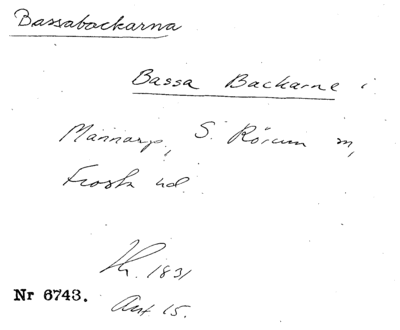 Bassabackarna
Bassa Backarne i
Mannarp, S. Rörum m,
Frosta hd
1831
Nr 6743.
Ant 15.